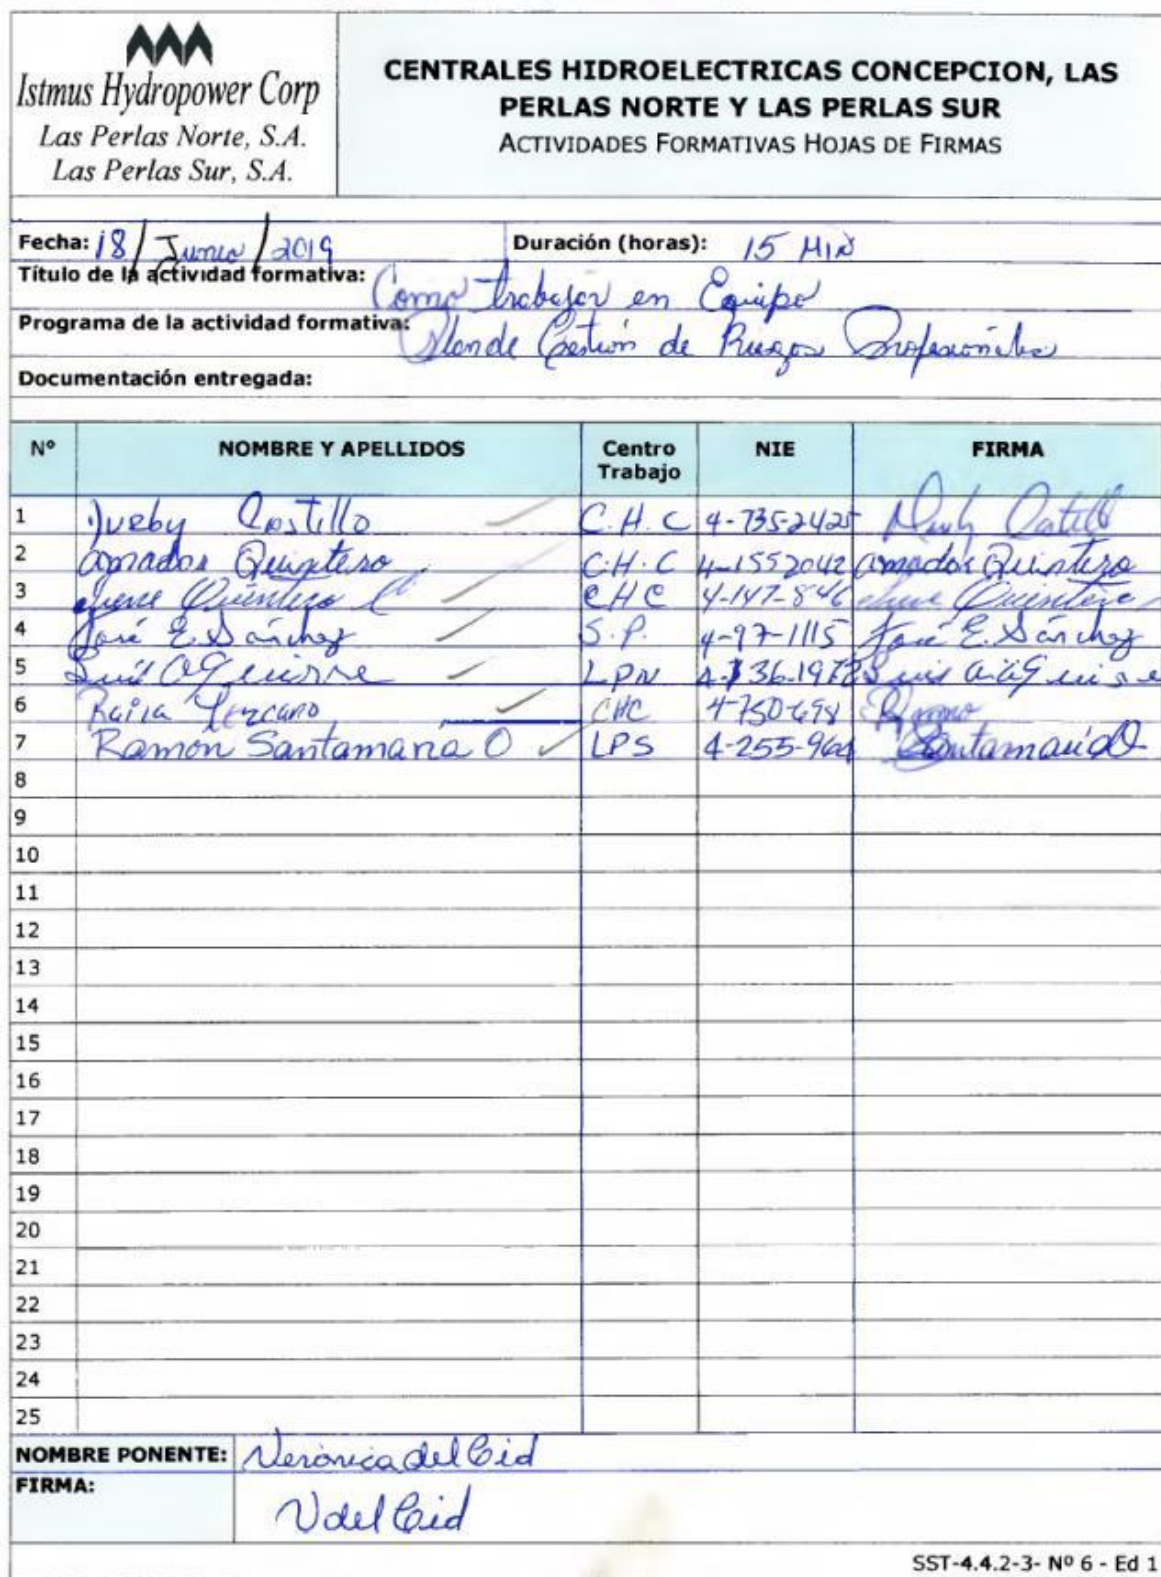 Istmus Hydropower Corp
Las Perlas Norte, S.A.
Las Perlas Sur, S.A.
CENTRALES HIDROELECTRICAS CONCEPCION, LAS
PERLAS NORTE Y LAS PERLAS SUR
ACTIVIDADES FORMATIVAS HOJAS DE FIRMAS
Fecha: 18/Junio/2019 Duración (horas): 15 MIN
Título de la actividad formativa: Como trabajar en Equipo
Programa de la actividad formativa: Plan de Gestión de Riesgos Profesionales
Documentación entregada:
Nº NOMBRE Y APELLIDOS Centro Trabajo NIE FIRMA
1 Castillo C.H.C 4-735-2425
2 Amador Quintero C.H.C 4-1552042 Amador Quintero
3 Quintero CHC 4-147-846 Quintero
4 José E. Sánchez S.P. 4-97-1115 José E. Sánchez
5 Luis Aguirre LPN 4-136-1972 Luis
6 CHC 4-750-698
7 Ramón Santamaría O LPS 4-255-964 Santamaría O
8
9
10
11
12
13
14
15
16
17
18
19
20
21
22
23
24
25
NOMBRE PONENTE: Verónica del Cid
FIRMA: V del Cid
SST-4.4.2-3- Nº 6 - Ed 1